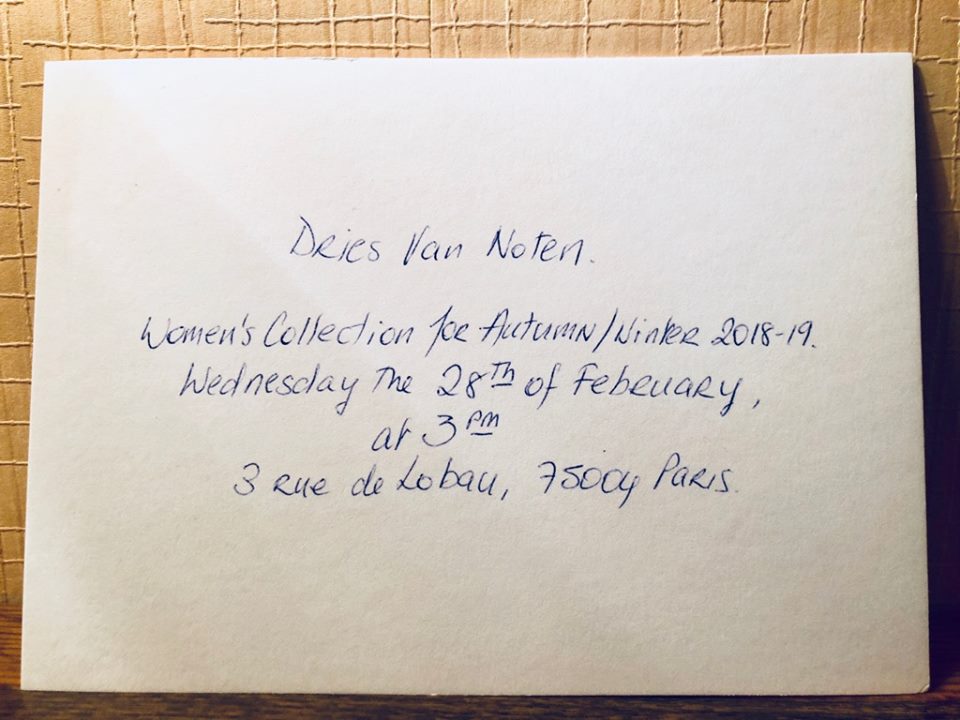 Dries Van Noten.
Women's Collection for Autumn/Winter 2018-19.
Wednesday the 28th of February,
at 3 pm
3 rue de Lobau, 75004 Paris.